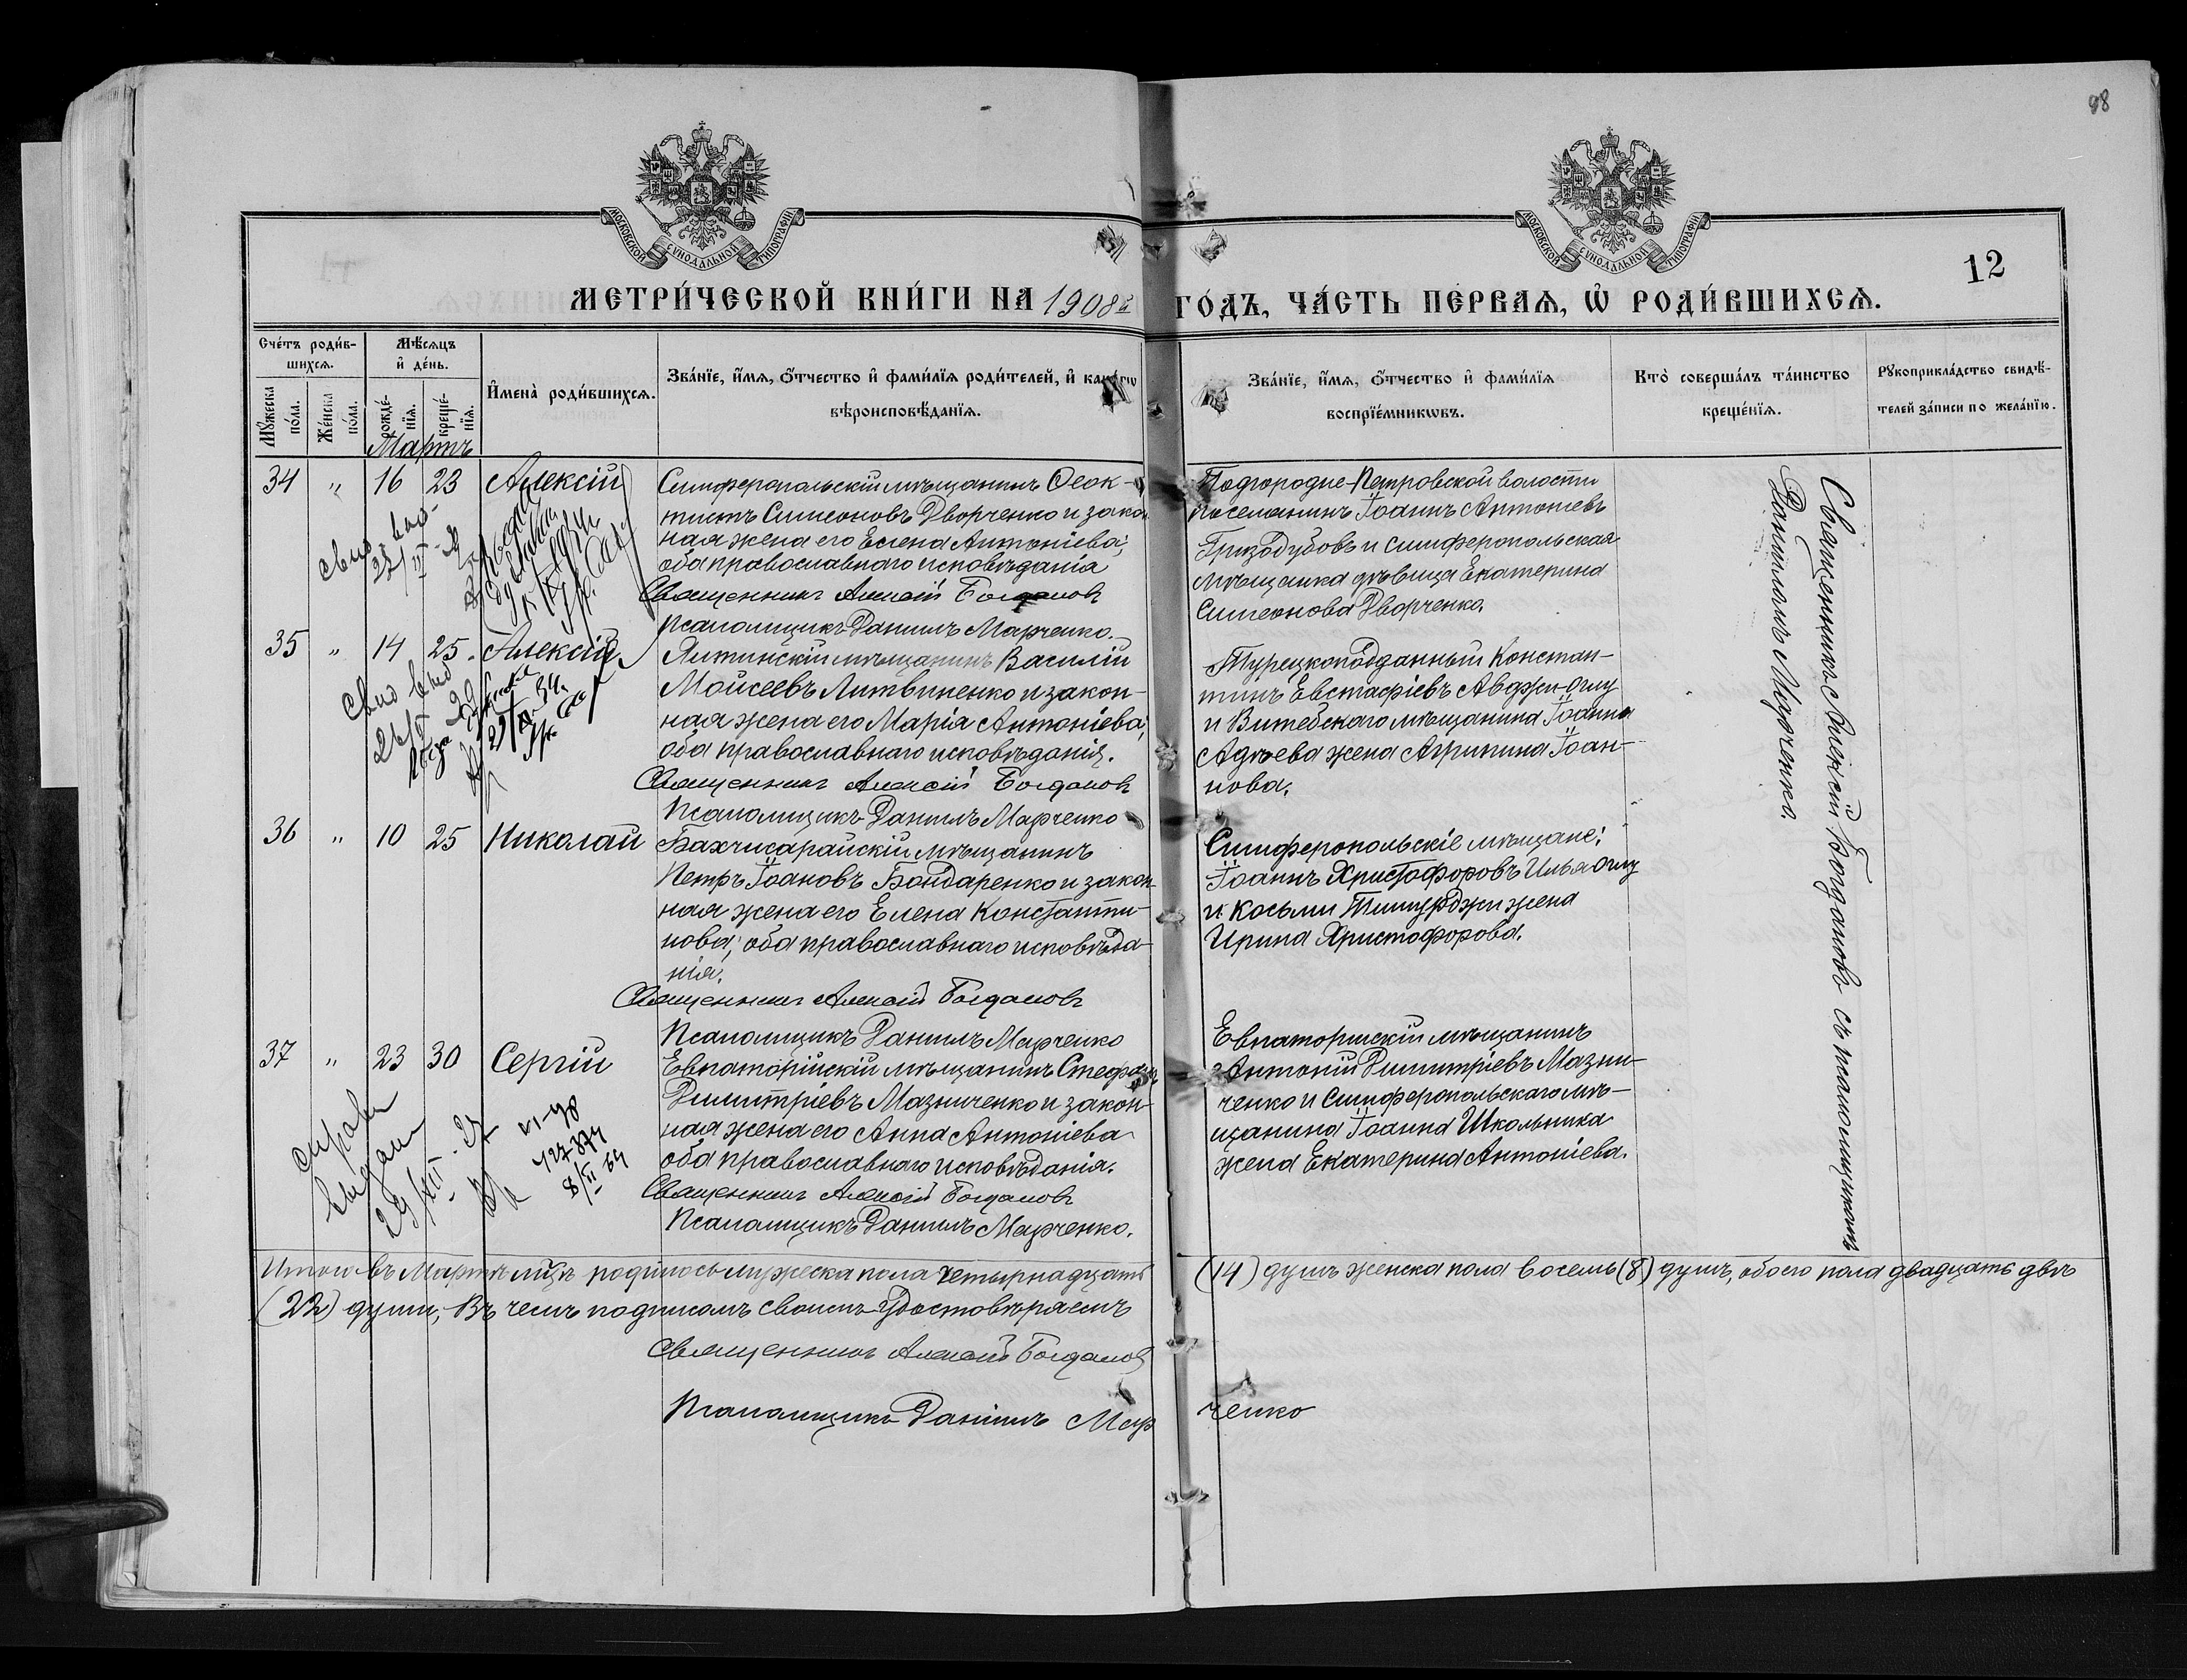 98
МОСКОВСКОЙ СУНОДАЛЬНОЙ ТИПОГРАФІИ
МОСКОВСКОЙ СУНОДАЛЬНОЙ ТИПОГРАФІИ
12
МЕТРИ́ЧЕСКОЙ КНИ́ГИ НА 1908й ГО́ДЪ, ЧА́СТЬ ПЕ́РВАѦ, Ѿ РОДИ́ВШИХСѦ.
Сче́тъ роди́в-
шихсѧ.
Мꙋ́жеска по́ла.
Же́нска по́ла.
Мѣ́сѧцъ
и҆ де́нь.
рожде́-нїѧ.
креще́-нїѧ.
И҆мена̀ роди́вшихсѧ.
Зва́нїе, и҆́мѧ, ѻ҆́тчество и҆ фами́лїѧ роди́телей, и҆ како́гѡ
вѣроисповѣ́данїѧ.
Зва́нїе, и҆́мѧ, ѻ҆́тчество и҆ фами́лїѧ
воспрїе́мникѡвъ.
Кто̀ соверша́лъ та́инство
креще́нїѧ.
Рꙋкоприкла́дство свидѣ́-
телей за́писи по жела́нїю.
Мартъ
34 " 16 23 Алексій
Симферопольскій мѣщанинъ Ѳеок-
тистъ Симеоновъ Дворченко и закон
ная жена его Елена Антоніева;
оба православнаго исповѣданія
Священникъ Алексій Богдановъ
Псаломщикъ Даніилъ Марченко.
Подгородне-Петровской волости
поселянинъ Іоаннъ Антоніевъ
Гризодубовъ и симферопольская
мѣщанка дѣвица Екатерина
Симеонова Дворченко.
35 " 14 25 Алексій
Ялтинскій мѣщанинъ Василій
Моисеевъ Литвиненко и закон-
ная жена его Марія Антоніева;
оба православнаго исповѣданія.
Священникъ Алексій Богдановъ
Псаломщикъ Даніилъ Марченко
Турецкоподданный Констан-
тинъ Евстафіевъ Авджи-оглу
и Витебскаго мѣщанина Іоанна
Адѣева жена Агрипина Іоан-
нова.
36 " 10 25 Николай
Бахчисарайскій мѣщанинъ
Петръ Іоановъ Бондаренко и закон-
ная жена его Елена Константи-
нова; оба православнаго исповѣда-
нія.
Священникъ Алексій Богдановъ
Псаломщикъ Даніилъ Марченко
Симферопольскіе мѣщане:
Іоаннъ Христофоровъ Илья оглу
и Косьмы жена
Ирина Христофорова.
37 " 23 30 Сергій
Евпаторійскій мѣщанинъ Стефанъ
Димитріевъ Мазниченко и закон-
ная жена его Анна Антоніева
оба православнаго исповѣданія.
Священникъ Алексій Богдановъ
Псаломщикъ Даніилъ Марченко.
Евпаторійскій мѣщанинъ
Антоній Димитріевъ Мазни-
ченко и симферопольскаго мѣ-
щанина Іоанна Школьника
жена Екатерина Антоніева.
справка
выдана
Священникъ Алексій Богдановъ съ псаломщикомъ
Даніиломъ Марченко.
Итого въ Мартѣ м-цѣ родилось мужеска пола четырнадцать (14) душъ женска пола восемь (8) душъ, обоего пола двадцать двѣ
(22) души, Въ чемъ подписомъ своимъ удостовѣряемъ
Священникъ Алексій Богдановъ
Псаломщикъ Даніилъ Марченко